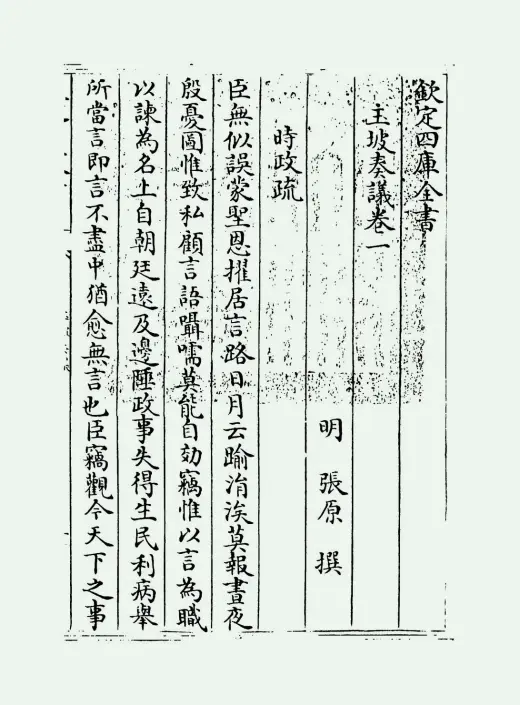 欽定四庫全書
玉坡奏議卷一
明 張原 撰
時政疏
臣無似誤蒙聖恩擢居言路日月云踰涓涘莫報晝夜
殷憂圖惟致私顧言語躡嚅莫能自効竊惟以言為職
以諫為名上自朝廷遠及邊陲政事失得生民利病舉
所當言即言不盡中猶愈無言也臣竊觀今天下之事